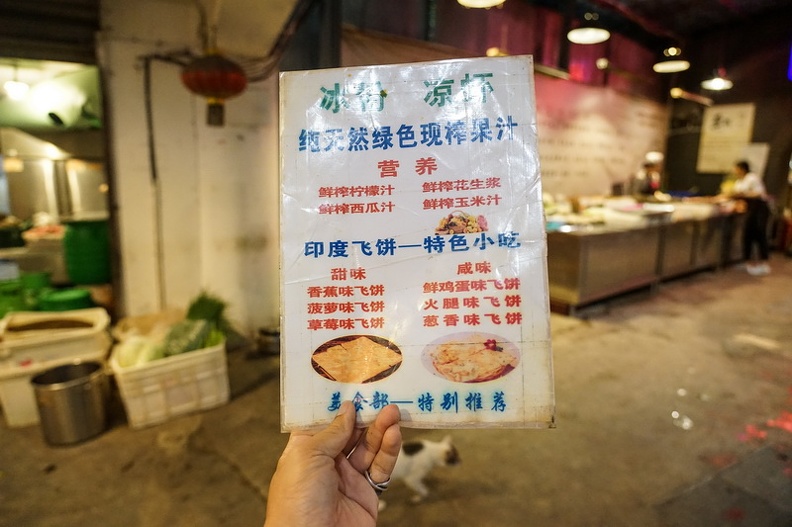 冰粉 凉虾
纯天然绿色现榨果汁
营养
鲜榨柠檬汁 鲜榨花生浆
鲜榨西瓜汁 鲜榨玉米汁
印度飞饼—特色小吃
甜味 咸味
香蕉味飞饼 鲜鸡蛋味飞饼
菠萝味飞饼 火腿味飞饼
草莓味飞饼 葱香味飞饼
美食部—特别推荐